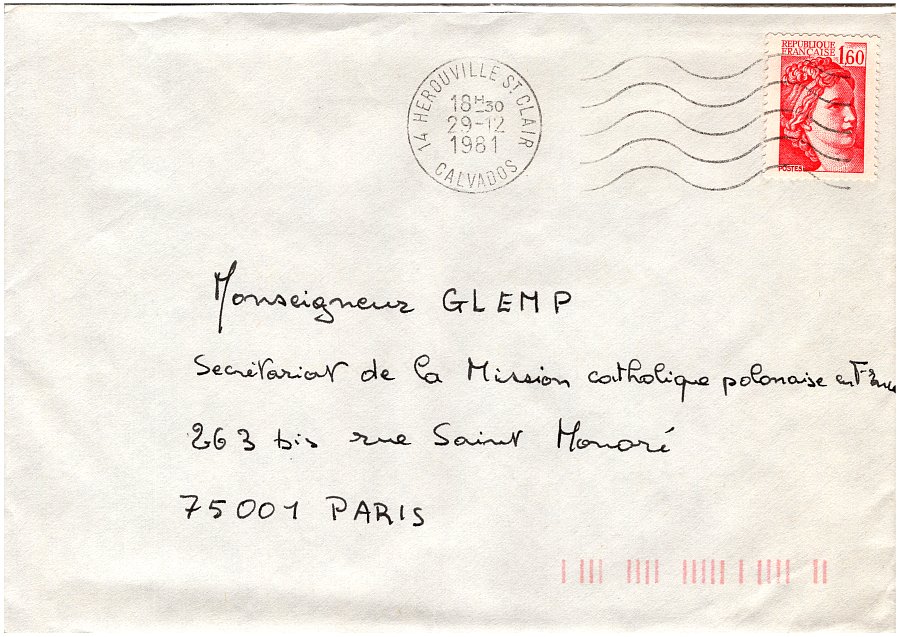 RÉPUBLIQUE
FRANÇAISE 1,60
POSTES
14 HEROUVILLE ST CLAIR
18H30
29-12
1981
CALVADOS
Monseigneur GLEMP
Secrétariat de la Mission catholique polonaise en France
263 bis rue Saint Honoré
75001 PARIS